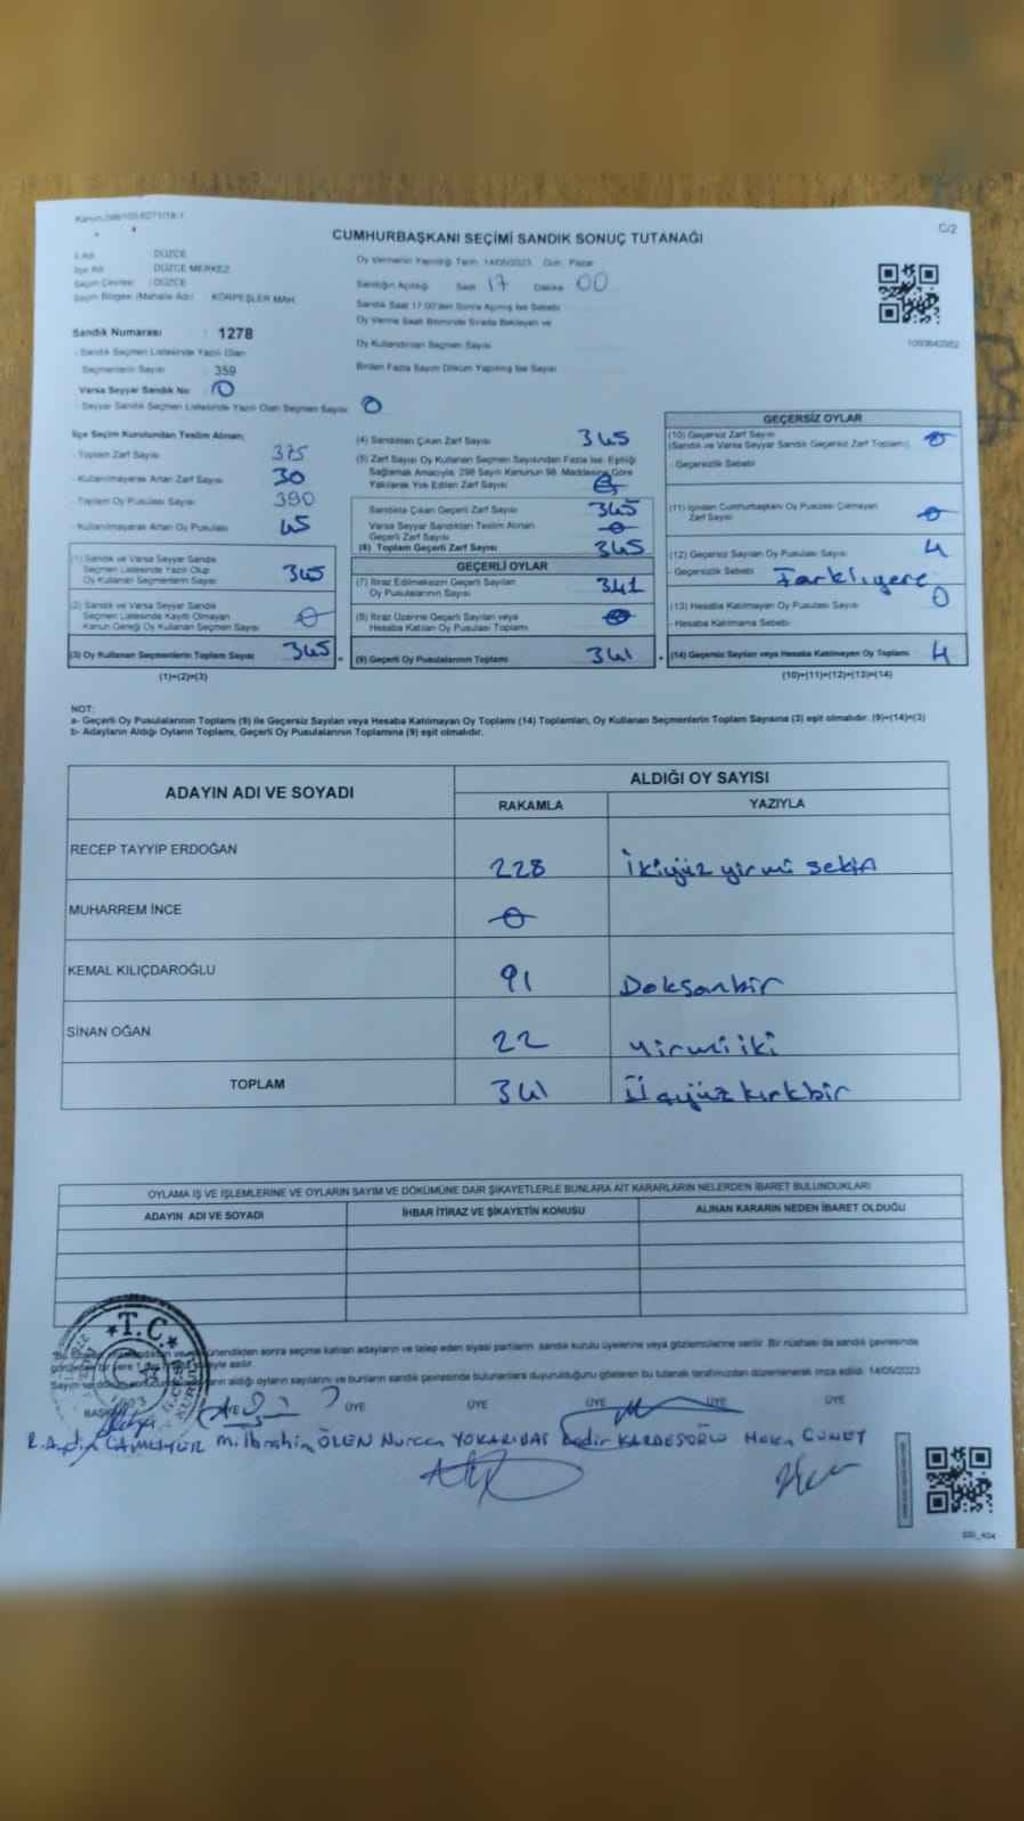 C/2
CUMHURBAŞKANI SEÇİMİ SANDIK SONUÇ TUTANAĞI
İl Adı DÜZCE
İlçe Adı DÜZCE MERKEZ
Seçim Çevresi : DÜZCE
Seçim Bölgesi (Mahalle Adı) KÖRPEŞLER MAH.
Oy Vermenin Yapıldığı Tarih 14/05/2023 Gün: Pazar
Sandığın Açıldığı Saat 17 Dakika 00
Sandık Saat 17:00'den Sonra Açılmış İse Sebebi
Oy Verme Saati Bitiminde Sırada Bekleyen ve
Oy Kullandırılan Seçmen Sayısı
Birden Fazla Sayım Döküm Yapılmış İse Sayısı
Sandık Numarası : 1278
- Sandık Seçmen Listesinde Yazılı Olan
Seçmenlerin Sayısı : 359
Varsa Seyyar Sandık No : 0
- Seyyar Sandık Seçmen Listesinde Yazılı Olan Seçmen Sayısı 0
İlçe Seçim Kurulundan Teslim Alınan;
- Toplam Zarf Sayısı 375
- Kullanılmayarak Artan Zarf Sayısı 30
- Toplam Oy Pusulası Sayısı 390
- Kullanılmayarak Artan Oy Pusulası 45
(1) Sandık ve Varsa Seyyar Sandık
Seçmen Listesinde Yazılı Olup
Oy Kullanan Seçmenlerin Sayısı 345
(2) Sandık ve Varsa Seyyar Sandık
Seçmen Listesinde Kayıtlı Olmayan
Kanun Gereği Oy Kullanan Seçmen Sayısı 0
(3) Oy Kullanan Seçmenlerin Toplam Sayısı 345
(1)+(2)=(3)
(4) Sandıktan Çıkan Zarf Sayısı 345
(5) Zarf Sayısı Oy Kullanan Seçmen Sayısından Fazla İse, Eşitliği
Sağlamak Amacıyla, 298 Sayılı Kanunun 98. Maddesine Göre
Yakılarak Yok Edilen Zarf Sayısı 0
Sandıkta Çıkan Geçerli Zarf Sayısı 345
Varsa Seyyar Sandıktan Teslim Alınan
Geçerli Zarf Sayısı 0
(6) Toplam Geçerli Zarf Sayısı 345
GEÇERLİ OYLAR
(7) İtiraz Edilmeksizin Geçerli Sayılan
Oy Pusulalarının Sayısı 341
(8) İtiraz Üzerine Geçerli Sayılan veya
Hesaba Katılan Oy Pusulası Toplamı 0
(9) Geçerli Oy Pusulalarının Toplamı 341
GEÇERSİZ OYLAR
(10) Geçersiz Zarf Sayısı
(Sandık ve Varsa Seyyar Sandık Geçersiz Zarf Toplamı) 0
- Geçersizlik Sebebi
(11) İçinden Cumhurbaşkanı Oy Pusulası Çıkmayan
Zarf Sayısı 0
(12) Geçersiz Sayılan Oy Pusulası Sayısı 4
- Geçersizlik Sebebi Farklıyere
(13) Hesaba Katılmayan Oy Pusulası Sayısı 0
- Hesaba Katılmama Sebebi
(14) Geçersiz Sayılan veya Hesaba Katılmayan Oy Toplamı 4
(10)+(11)+(12)+(13)=(14)
NOT:
a- Geçerli Oy Pusulalarının Toplamı (9) ile Geçersiz Sayılan veya Hesaba Katılmayan Oy Toplamı (14) Toplamları, Oy Kullanan Seçmenlerin Toplam Sayısına (3) eşit olmalıdır. (9)+(14)=(3)
b- Adayların Aldığı Oyların Toplamı, Geçerli Oy Pusulalarının Toplamına (9) eşit olmalıdır.
ADAYIN ADI VE SOYADI ALDIĞI OY SAYISI
RAKAMLA YAZIYLA
RECEP TAYYIP ERDOĞAN 228 İkiyüz yirmi sekiz
MUHARREM İNCE 0
KEMAL KILIÇDAROĞLU 91 Doksanbir
SİNAN OĞAN 22 yirmi iki
TOPLAM 341 Üçyüz kırkbir
OYLAMA İŞ VE İŞLEMLERİNE VE OYLARIN SAYIM VE DÖKÜMÜNE DAİR ŞİKAYETLERLE BUNLARA AİT KARARLARIN NELERDEN İBARET BULUNDUKLARI
ADAYIN ADI VE SOYADI İHBAR İTİRAZ VE ŞİKAYETİN KONUSU ALINAN KARARIN NEDEN İBARET OLDUĞU
T.C.
sonra seçime katılan adayların ve talep eden siyasi partilerin sandık kurulu üyelerine veya gözlemcilerine verilir. Bir nüshası da sandık çevresinde
aldığı oyların sayılarını ve bunların sandık çevresinde bulunanlara duyurulduğunu gösteren bu tutanak tarafımızdan düzenlenerek imza edildi. 14/05/2023
BAŞKAN ÜYE ÜYE ÜYE ÜYE ÜYE ÜYE
M. İbrahim ÖLEN Nurcan YOKARIBAŞ Kadir KARDEŞOĞLU Hakan CÜNEY